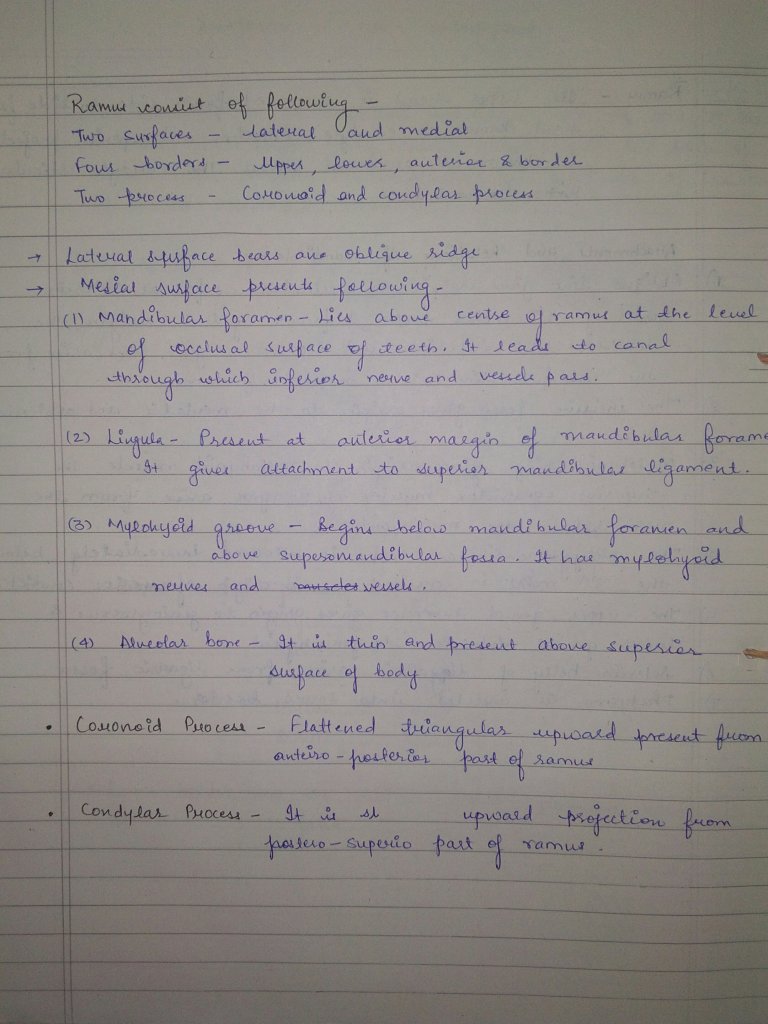 Ramus consist of following -
Two surfaces - lateral and medial
Four borders - Upper, lower, anterior & border
Two process - Coronoid and condylar process
→ Lateral surface bears one oblique ridge
→ Mesial surface presents following -
(1) Mandibular foramen - Lies above centre of ramus at the level
of occlusal surface of teeth. It leads to canal
through which inferior nerve and vessels pass.
(2) Lingula - Present at anterior margin of mandibular forame
It gives attachment to superior mandibular ligament.
(3) Mylohyoid groove - Begins below mandibular foramen and
above superomandibular fossa. It has mylohyoid
nerves and muscles vessels.
(4) Alveolar bone - It is thin and present above superior
surface of body
• Coronoid Process - Flattened triangular upward present from
anteiro-posterior part of ramus
• Condylar Process - It is st upward projection from
postero-superio part of ramus.